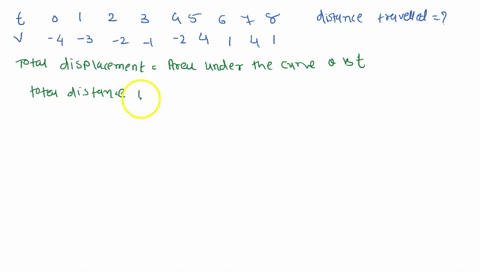 t 0 1 2 3 4 5 6 7 8 distance travelled = ?
V -4 -3 -2 -1 -2 4 1 4 1
Total displacement = Area under the curve v vs t
total distance